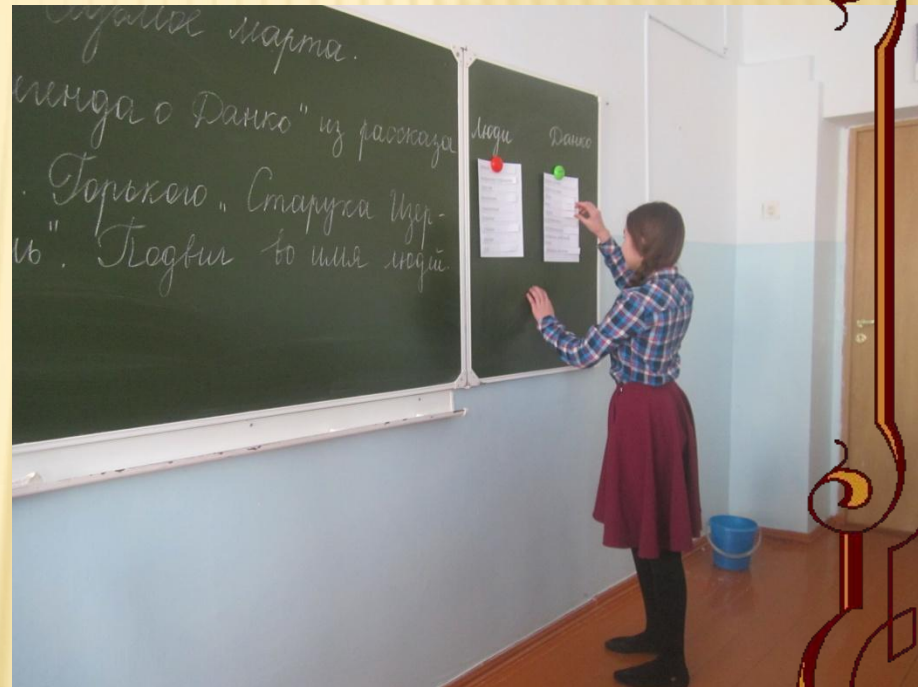 марта.
егенда о Данко" из рассказа
. Горького „ Старуха Изер-
ль". Подвиг во имя людей.
Люди Данко